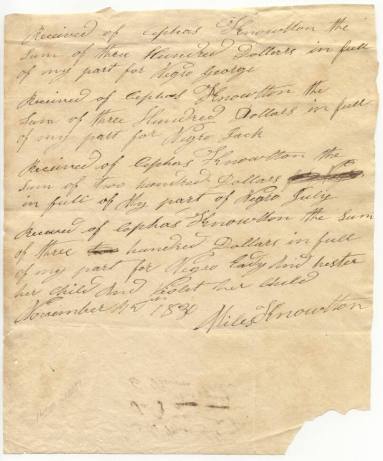 Received of Cephas Knowlton the
Sum of three Hundred Dollars in full
of my part for Negro George
Received of Cephas Knowlton the
Sum of three Hundred Dollars in full
of my part for Negro Jack
Received of Cephas Knowlton the
Sum of two hundred Dollars
in full of My part of Negro July
Received of Cephas Knowlton the Sum
of three hundred Dollars in full
of my part for Negro Lady And hester
her Child And violet her Child
November
Miles Knowlton